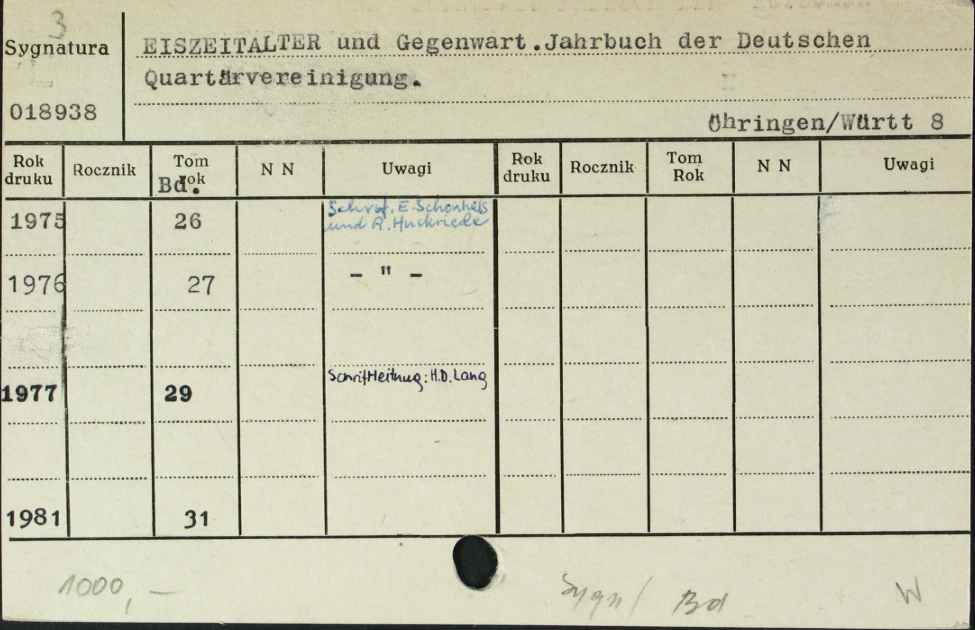 3
Sygnatura
EISZEITALTER und Gegenwart.Jahrbuch der Deutschen
Quartärvereinigung.
018938
Öhringen/Württ 8
Rok druku Rocznik Tom Rok Bd. N N Uwagi Rok druku Rocznik Tom Rok N N Uwagi
1975 26 Schrif. E. Schönhels
und R. Huckriede
1976 27 - " -
1977 29 Schriftleitung: H.D. Lang
1981 31
1000,-
Sygn/ Bd W